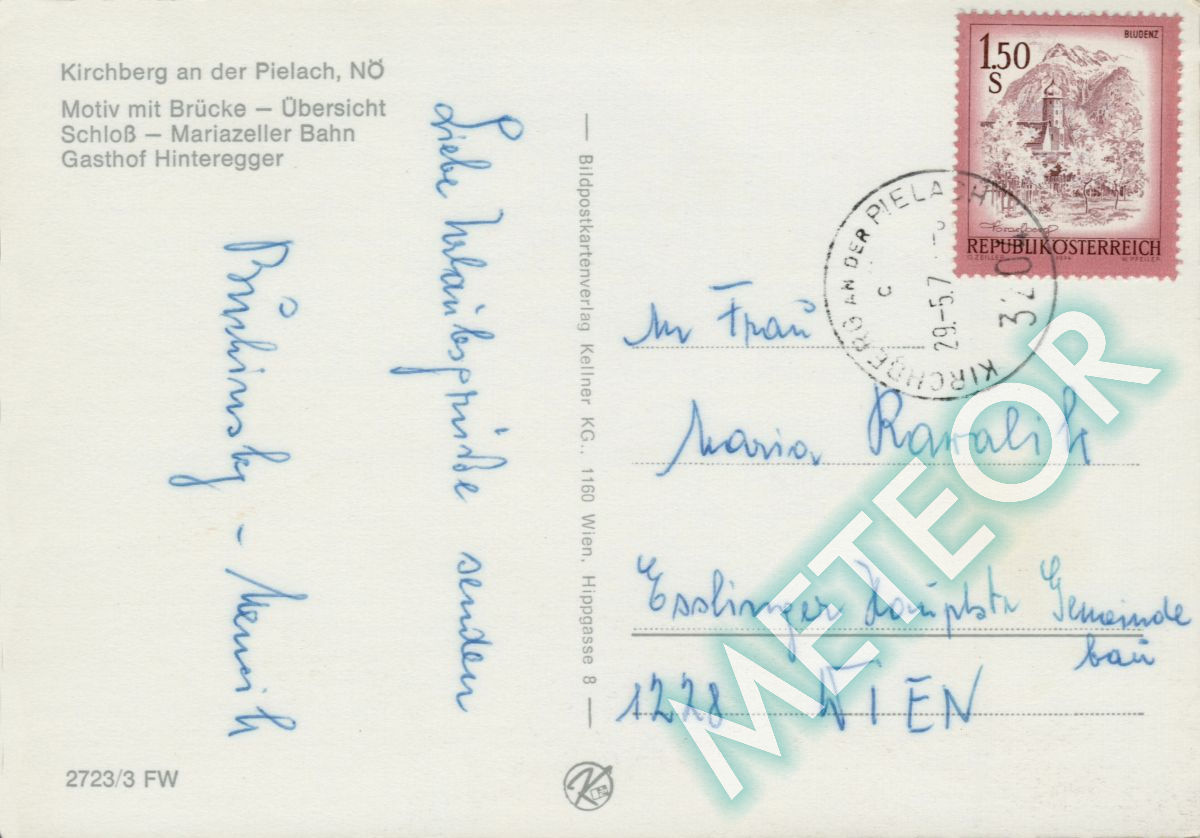 Kirchberg an der Pielach, NÖ
Motiv mit Brücke – Übersicht
Schloß – Mariazeller Bahn
Gasthof Hinteregger
Liebe Urlaubsgrüße senden
2723/3 FW
— Bildpostkartenverlag Kellner KG., 1160 Wien, Hippgasse 8 —
BLUDENZ
1.50
S
Vorarlberg
REPUBLIK ÖSTERREICH
KIRCHBERG AN DER PIELACH
29.-5.7
An Frau
Maria
Esslinger Hauptstr Gemeinde
bau
1228 WIEN
METEOR